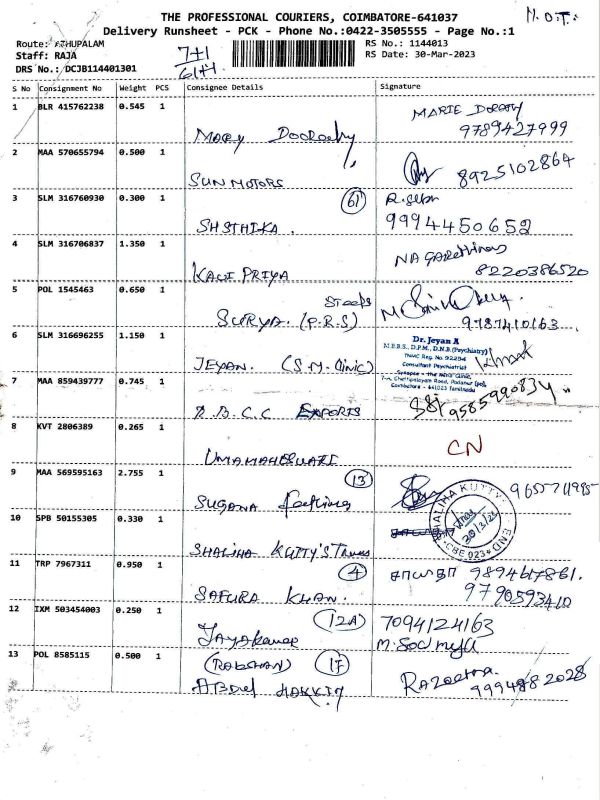 THE PROFESSIONAL COURIERS, COIMBATORE-641037
M.O.T.
Delivery Runsheet - PCK - Phone No.:0422-3505555 - Page No.:1
Route: ATHUPALAM
7+1
RS No.: 1144013
Staff: RAJA
RS Date: 30-Mar-2023
DRS No.: DCJB114401301
S No Consignment No Weight PCS Consignee Details Signature
1 BLR 415762238 0.545 1
MARIE
9789427999
Mary
2 MAA 570655794 0.500 1
8925102864
SUN MOTORS
3 SLM 316760930 0.300 1
61
9994450652
SHSTHIKA.
4 SLM 316706837 1.350 1
8220386520
KAVI PRIYA
5 POL 1545463 0.650 1
SURYA. (P.R.S)
9787410163
6 SLM 316696255 1.150 1
Dr. Jeyan A
M.B.B.S., D.P.M., D.N.B.(Psychiatry)
TNMC Reg. No. 92294
Consultant Psychiatrist
Synapse - the Mind Clinic,
Coimbatore - 641023 Tamilnadu
JEYAN. (S.M. Clinic)
7 MAA 859439777 0.745 1
EXPORTS
8 KVT 2806389 0.265 1
CN
UMAMAHESWARI
9 MAA 569595163 2.755 1
13
SUGANA
10 SPB 50155305 0.330 1
SHALIHA KUTTY
CBE 023
SHALIHA KUTTY'S
11 TRP 7967311 0.950 1
4
9894617861.
9790593410
SAFURA KHAN.
12 IXM 503454003 0.250 1
12A
7094124163
Jayakumar
13 POL 8585115 0.500 1
17
ABDUL HAKKIM
9994882028